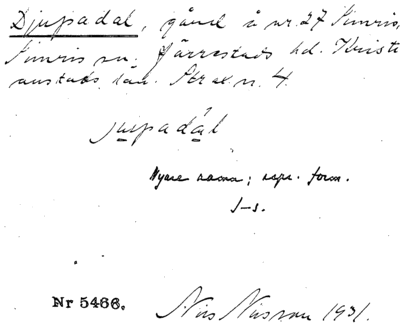 Djupadal, gård å nr. 27 Simris,
Simris sn. Järrestads hd. Kristi-
anstads län. Ak. n. 4.
jupadál
Nyare namn; uppr. form.
J-s.
Nr 5466.
Nils Nilsson 1931.